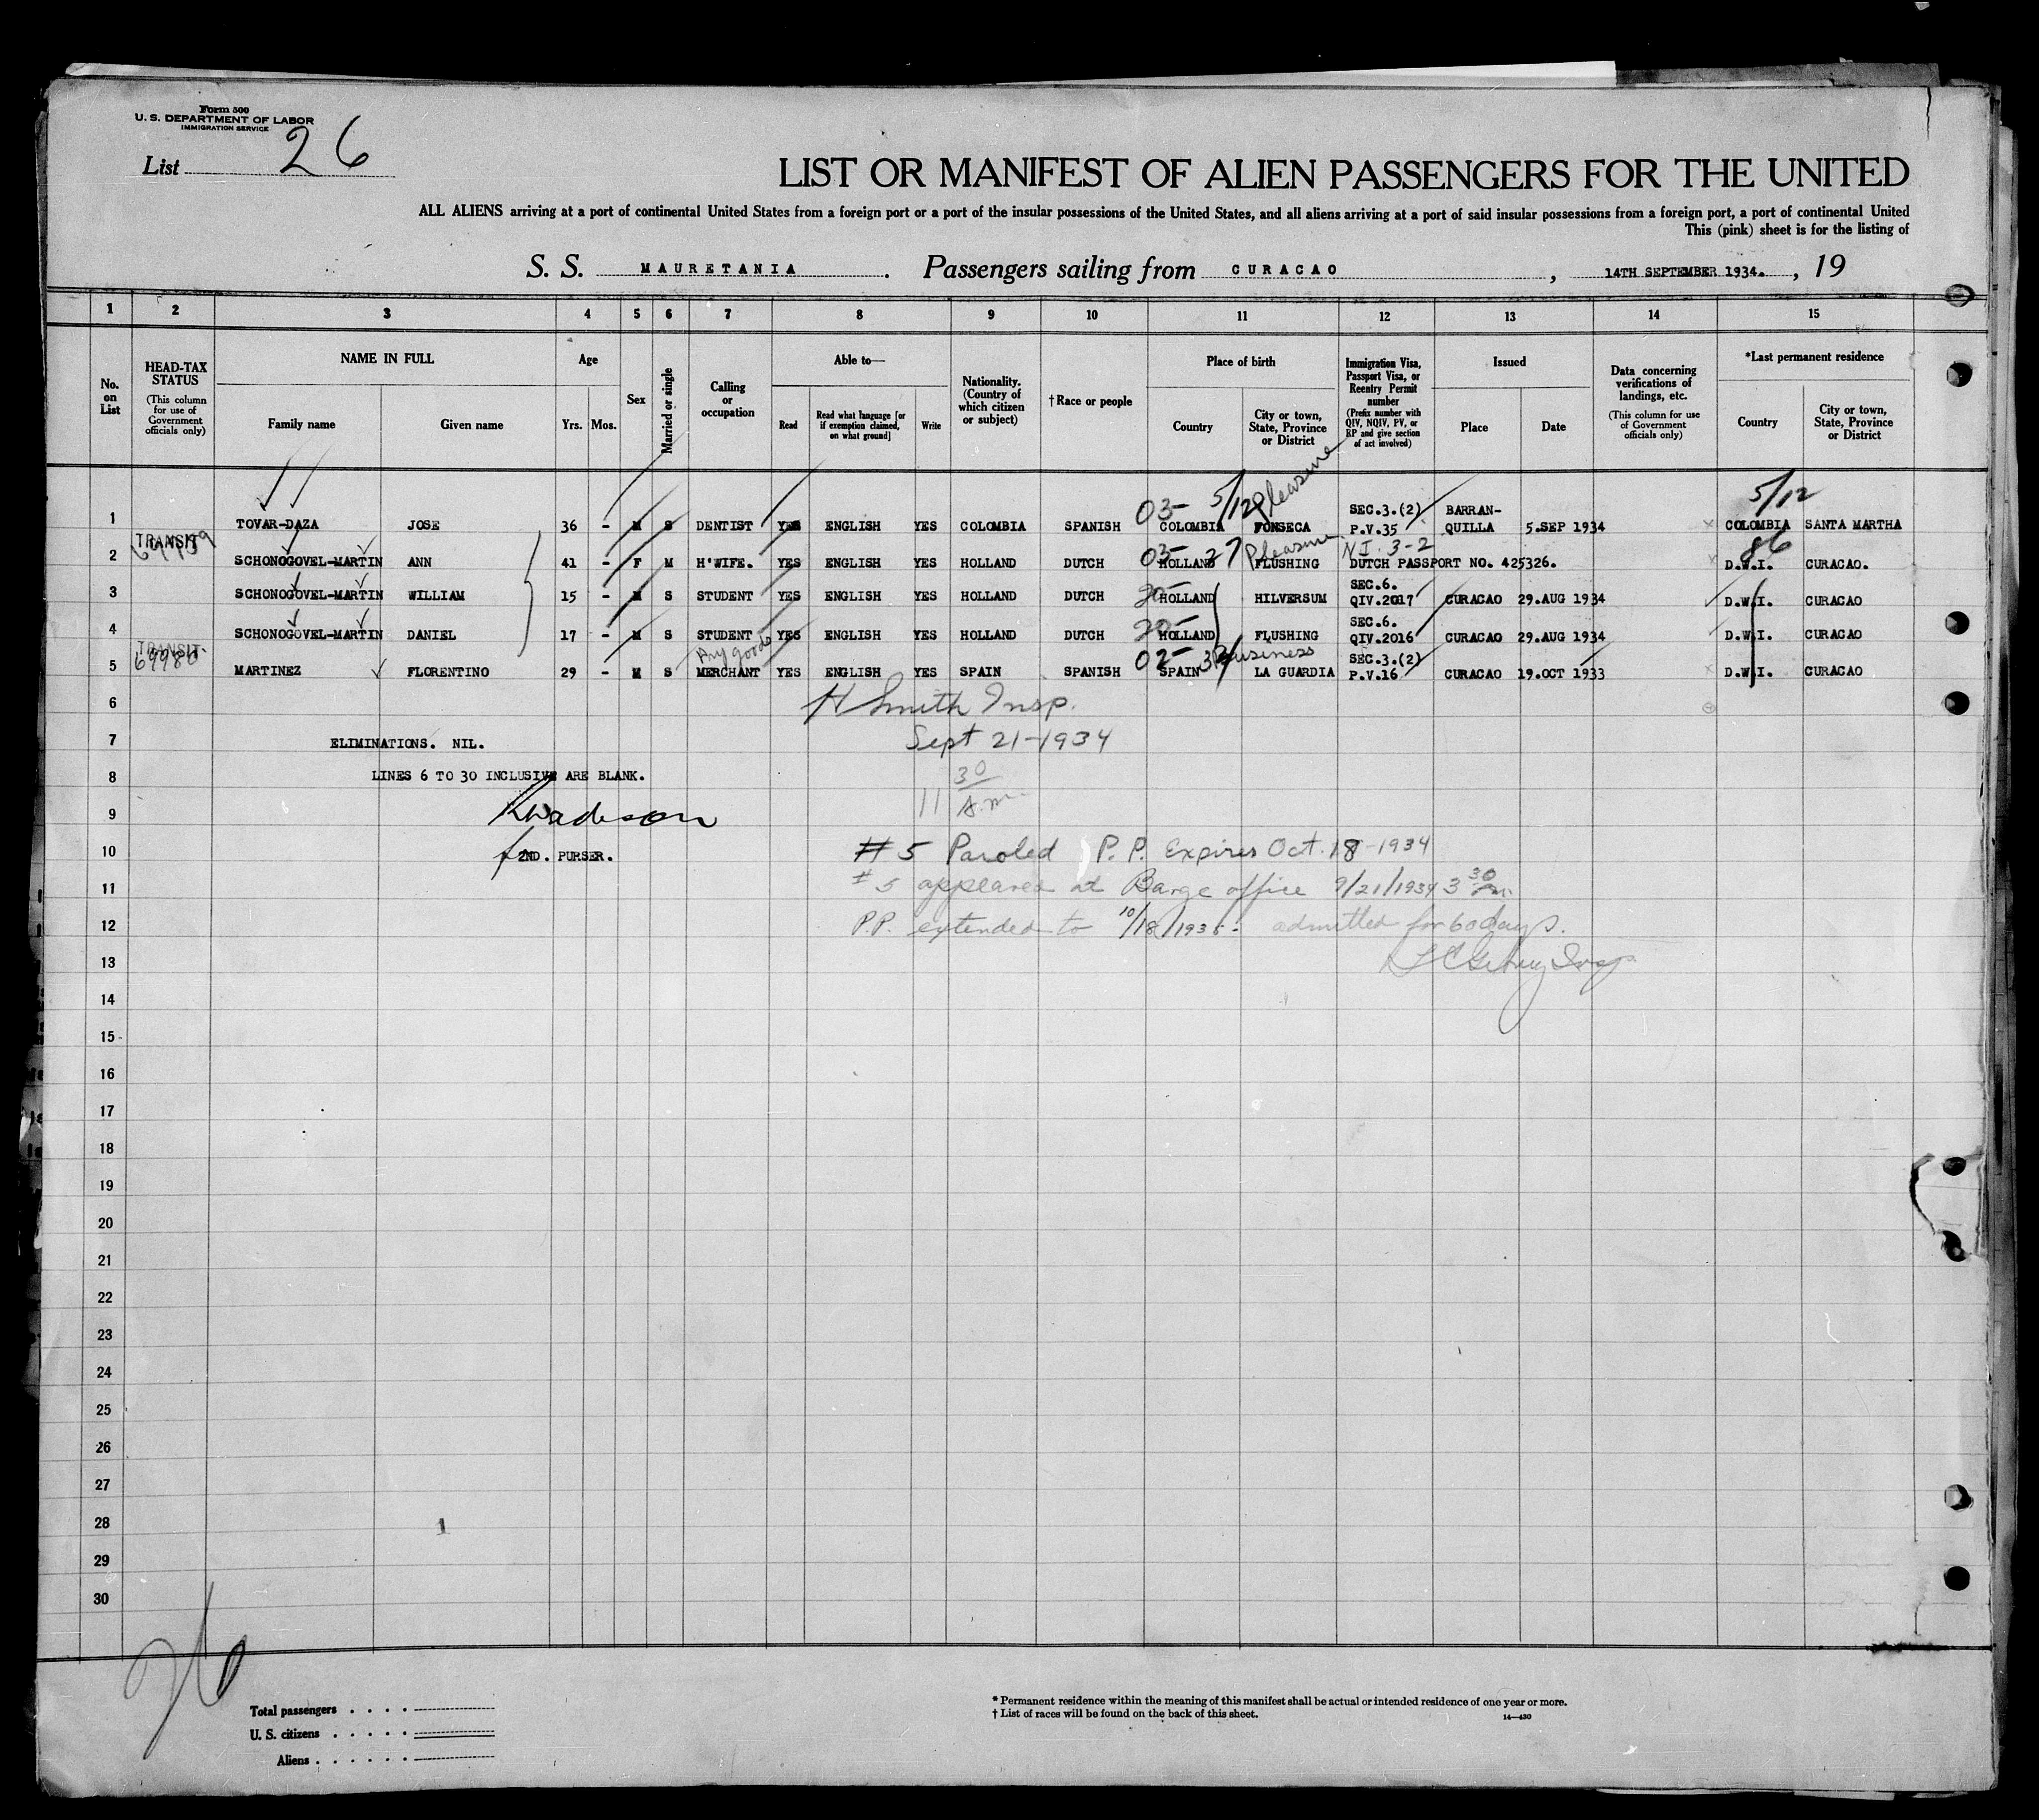 Form 500
U. S. DEPARTMENT OF LABOR
IMMIGRATION SERVICE
List 26
LIST OR MANIFEST OF ALIEN PASSENGERS FOR THE UNITED
ALL ALIENS arriving at a port of continental United States from a foreign port or a port of the insular possessions of the United States, and all aliens arriving at a port of said insular possessions from a foreign port, a port of continental United
This (pink) sheet is for the listing of
S. S. MAURETANIA . Passengers sailing from CURACAO , 14TH SEPTEMBER 1934. , 19
1 2 3 4 5 6 7 8 9 10 11 12 13 14 15
No. on List
HEAD-TAX STATUS (This column for use of Government officials only)
NAME IN FULL
Family name Given name
Age
Yrs. Mos.
Sex
Married or single
Calling or occupation
Able to—
Read Read what language [or if exemption claimed, on what ground] Write
Nationality. (Country of which citizen or subject)
†Race or people
Place of birth
Country City or town, State, Province or District
Immigration Visa, Passport Visa, or Reentry Permit number (Prefix number with QIV, NQIV, PV, or RP and give section of act involved)
Issued
Place Date
Data concerning verifications of landings, etc. (This column for use of Government officials only)
*Last permanent residence
Country City or town, State, Province or District
03- 5/12 Pleasure 5/12
1 TOVAR-DAZA JOSE 36 - M S DENTIST YES ENGLISH YES COLOMBIA SPANISH COLOMBIA FONSECA SEC.3.(2) P.V.35 BARRAN-QUILLA 5.SEP 1934 COLOMBIA SANTA MARTHA
TRANSIT
03- 27 Pleasure N I. 3-2 86
2 SCHONOGOVEL-MARTIN ANN 41 - F M H'WIFE. YES ENGLISH YES HOLLAND DUTCH HOLLAND FLUSHING DUTCH PASSPORT NO. 425326. D.W.I. CURACAO.
3 SCHONOGOVEL-MARTIN WILLIAM 15 - M S STUDENT YES ENGLISH YES HOLLAND DUTCH HOLLAND HILVERSUM SEC.6. QIV.2017 CURACAO 29.AUG 1934 D.W.I. CURACAO
4 SCHONOGOVEL-MARTIN DANIEL 17 - M S STUDENT YES ENGLISH YES HOLLAND DUTCH HOLLAND FLUSHING SEC.6. QIV.2016 CURACAO 29.AUG 1934 D.W.I. CURACAO
TRANSIT
69980 Dry goods 02- Business
5 MARTINEZ FLORENTINO 29 - M S MERCHANT YES ENGLISH YES SPAIN SPANISH SPAIN LA GUARDIA SEC.3.(2) P.V.16 CURACAO 19.OCT 1933 D.W.I. CURACAO
6 H Smith Insp.
7 ELIMINATIONS. NIL. Sept 21-1934
8 LINES 6 TO 30 INCLUSIVE ARE BLANK.
9 11 30 A.m.
10 for 2ND. PURSER. #5 Paroled P. P. Expires Oct. 18-1934
11 #5 appeared at Barge office 9/21/1934 3 30
12 P.P. extended to 10/18/1935 admitted for 60 days.
13
14
15
16
17
18
19
20
21
22
23
24
25
26
27
28
29
30
26
Total passengers
U. S. citizens
Aliens
* Permanent residence within the meaning of this manifest shall be actual or intended residence of one year or more.
† List of races will be found on the back of this sheet.
14—430